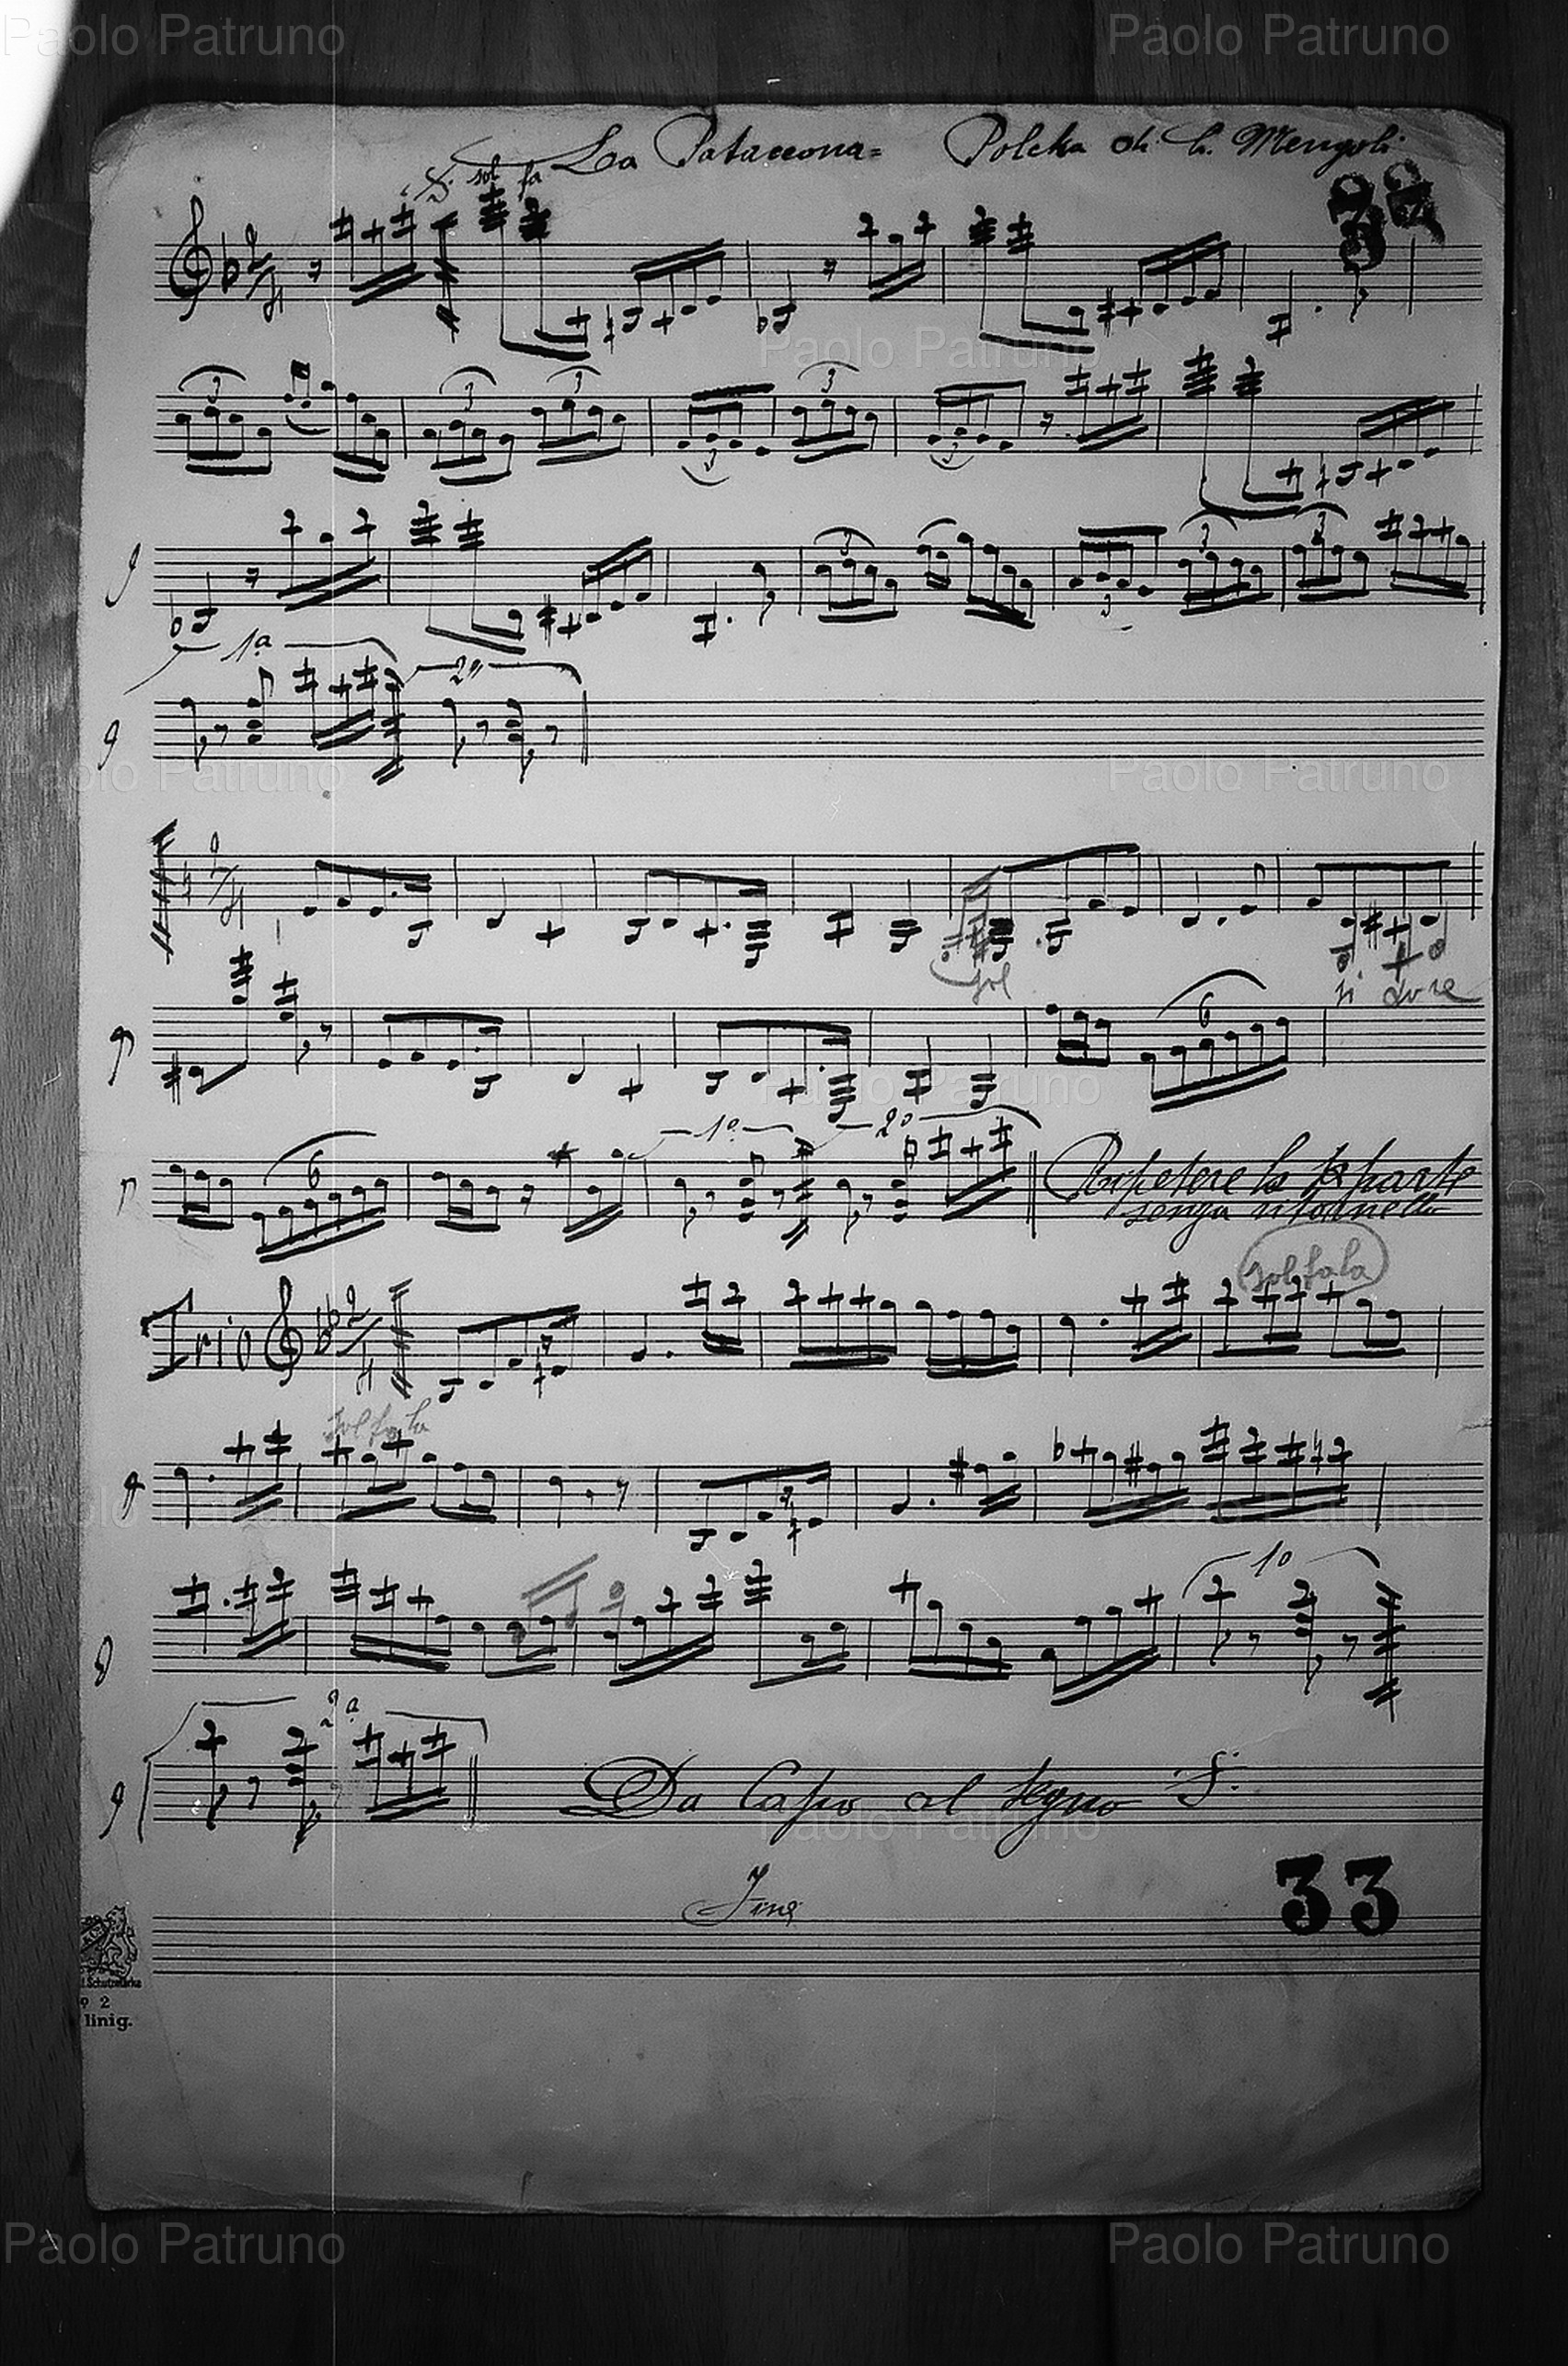 Paolo Patruno Paolo Patruno
La Pataccona= Polcka di L. Mengoli
sol fa
37
Paolo Patruno
3
3 3 3
3 3
3 3 3
3
1a 2a
Paolo Patruno Paolo Patruno
sol si do re
6
Paolo Patruno
6 1a 2a Repetere la 1a parte
senza ritornello
sol fa la
Trio
sol fa la
Paolo Patruno Paolo Patruno
1a
2a
Da Capo al Segno
Paolo Patruno
Fine
33
Schutzmarke
2
linig.
Paolo Patruno Paolo Patruno